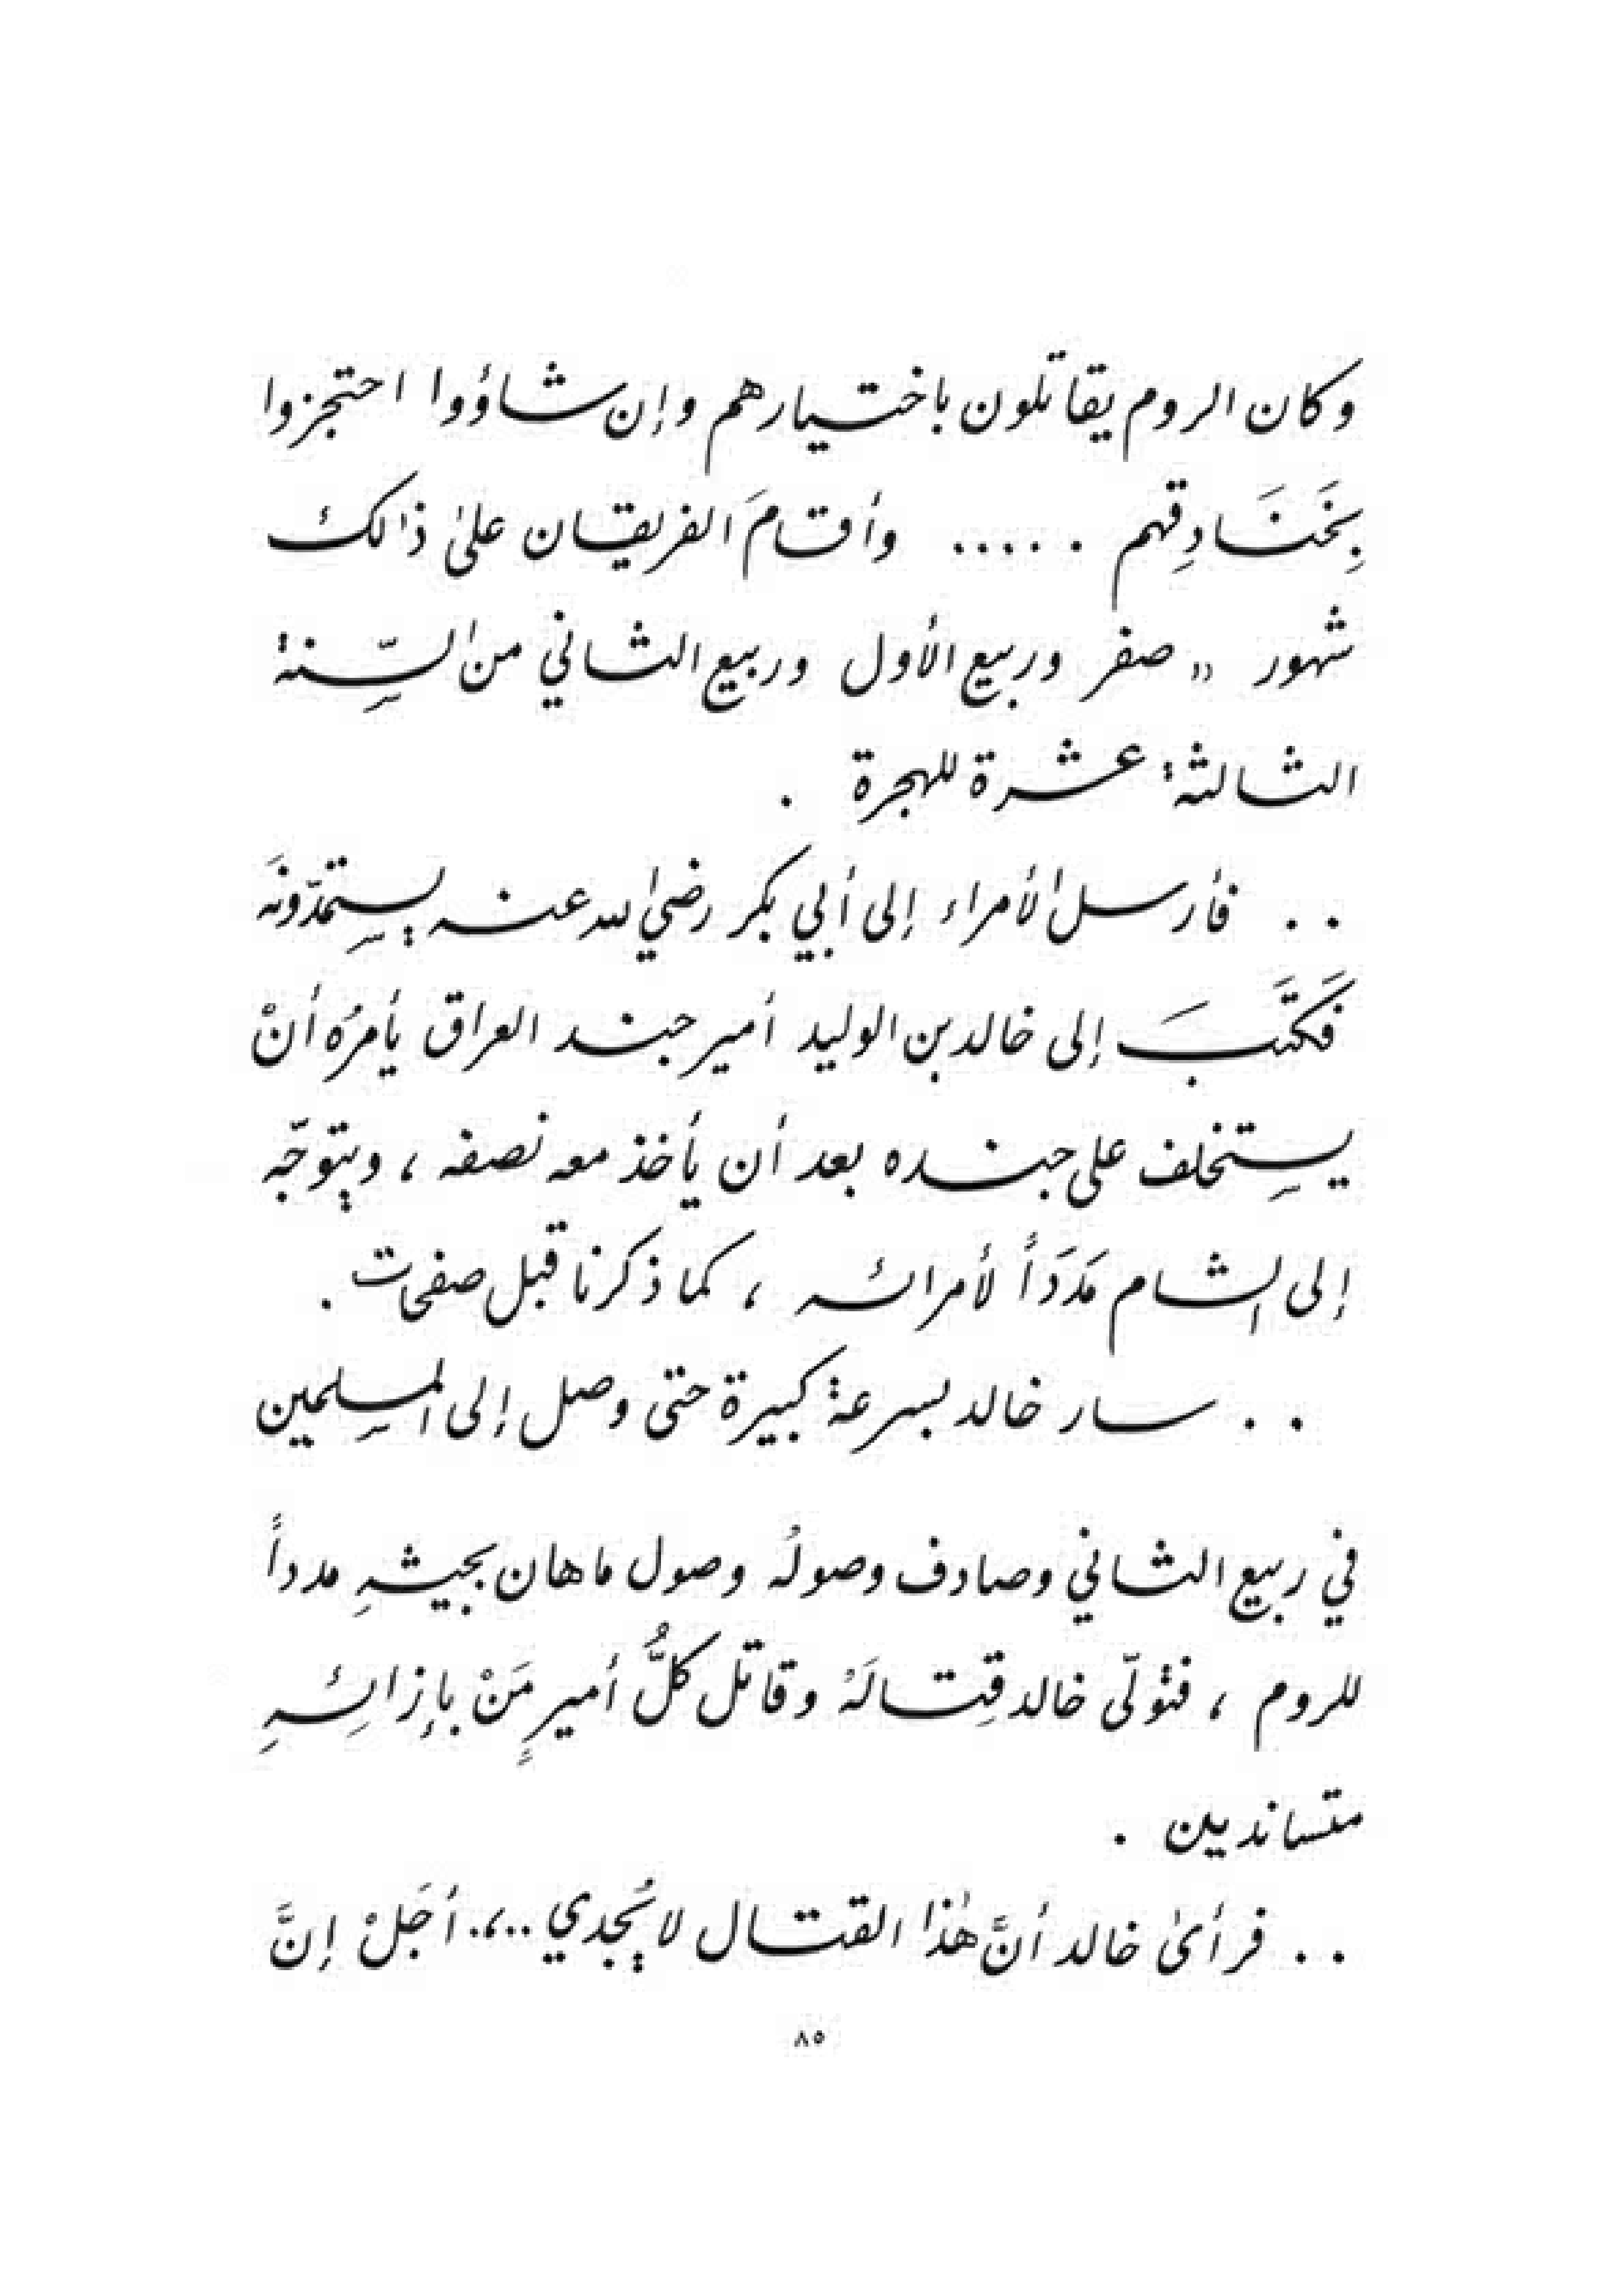 وكان الروم يقاتلون باختيارهم وإن شاؤوا احتجزوا
بِخَنَادِقهم ..... وأقامَ الفريقان علىٰ ذالك
شهور „ صفر وربيع الأول وربيع الثاني من السِّنة
الثالثة عشرة للهجرة .
.. فأرسل الأمراء إلى أبي بكر رضي الله عنه يستمدّونَه
فَكَتَبَ إلى خالد بن الوليد أمير جند العراق يأمرُه أنْ
يستخلف على جنده بعد أن يأخذ معه نصفه ، ويتوجّه
إلى الشام مَدَدَاً لأمرائه ، كما ذكرنا قبل صفحات .
.. سار خالد بسرعة كبيرة حتى وصل إلى المسلمين
في ربيع الثاني وصادف وصولُه وصول ماهان بجيشهِ مدداً
للروم ، فتولّى خالد قِتالَهُ وقاتل كلُّ أميرٍ مَنْ بإزائِهِ
متساندين .
.. فرأىٰ خالد أنَّ هٰذا القتال لا يُجدي ..،. أجَلْ إنَّ
٨٥